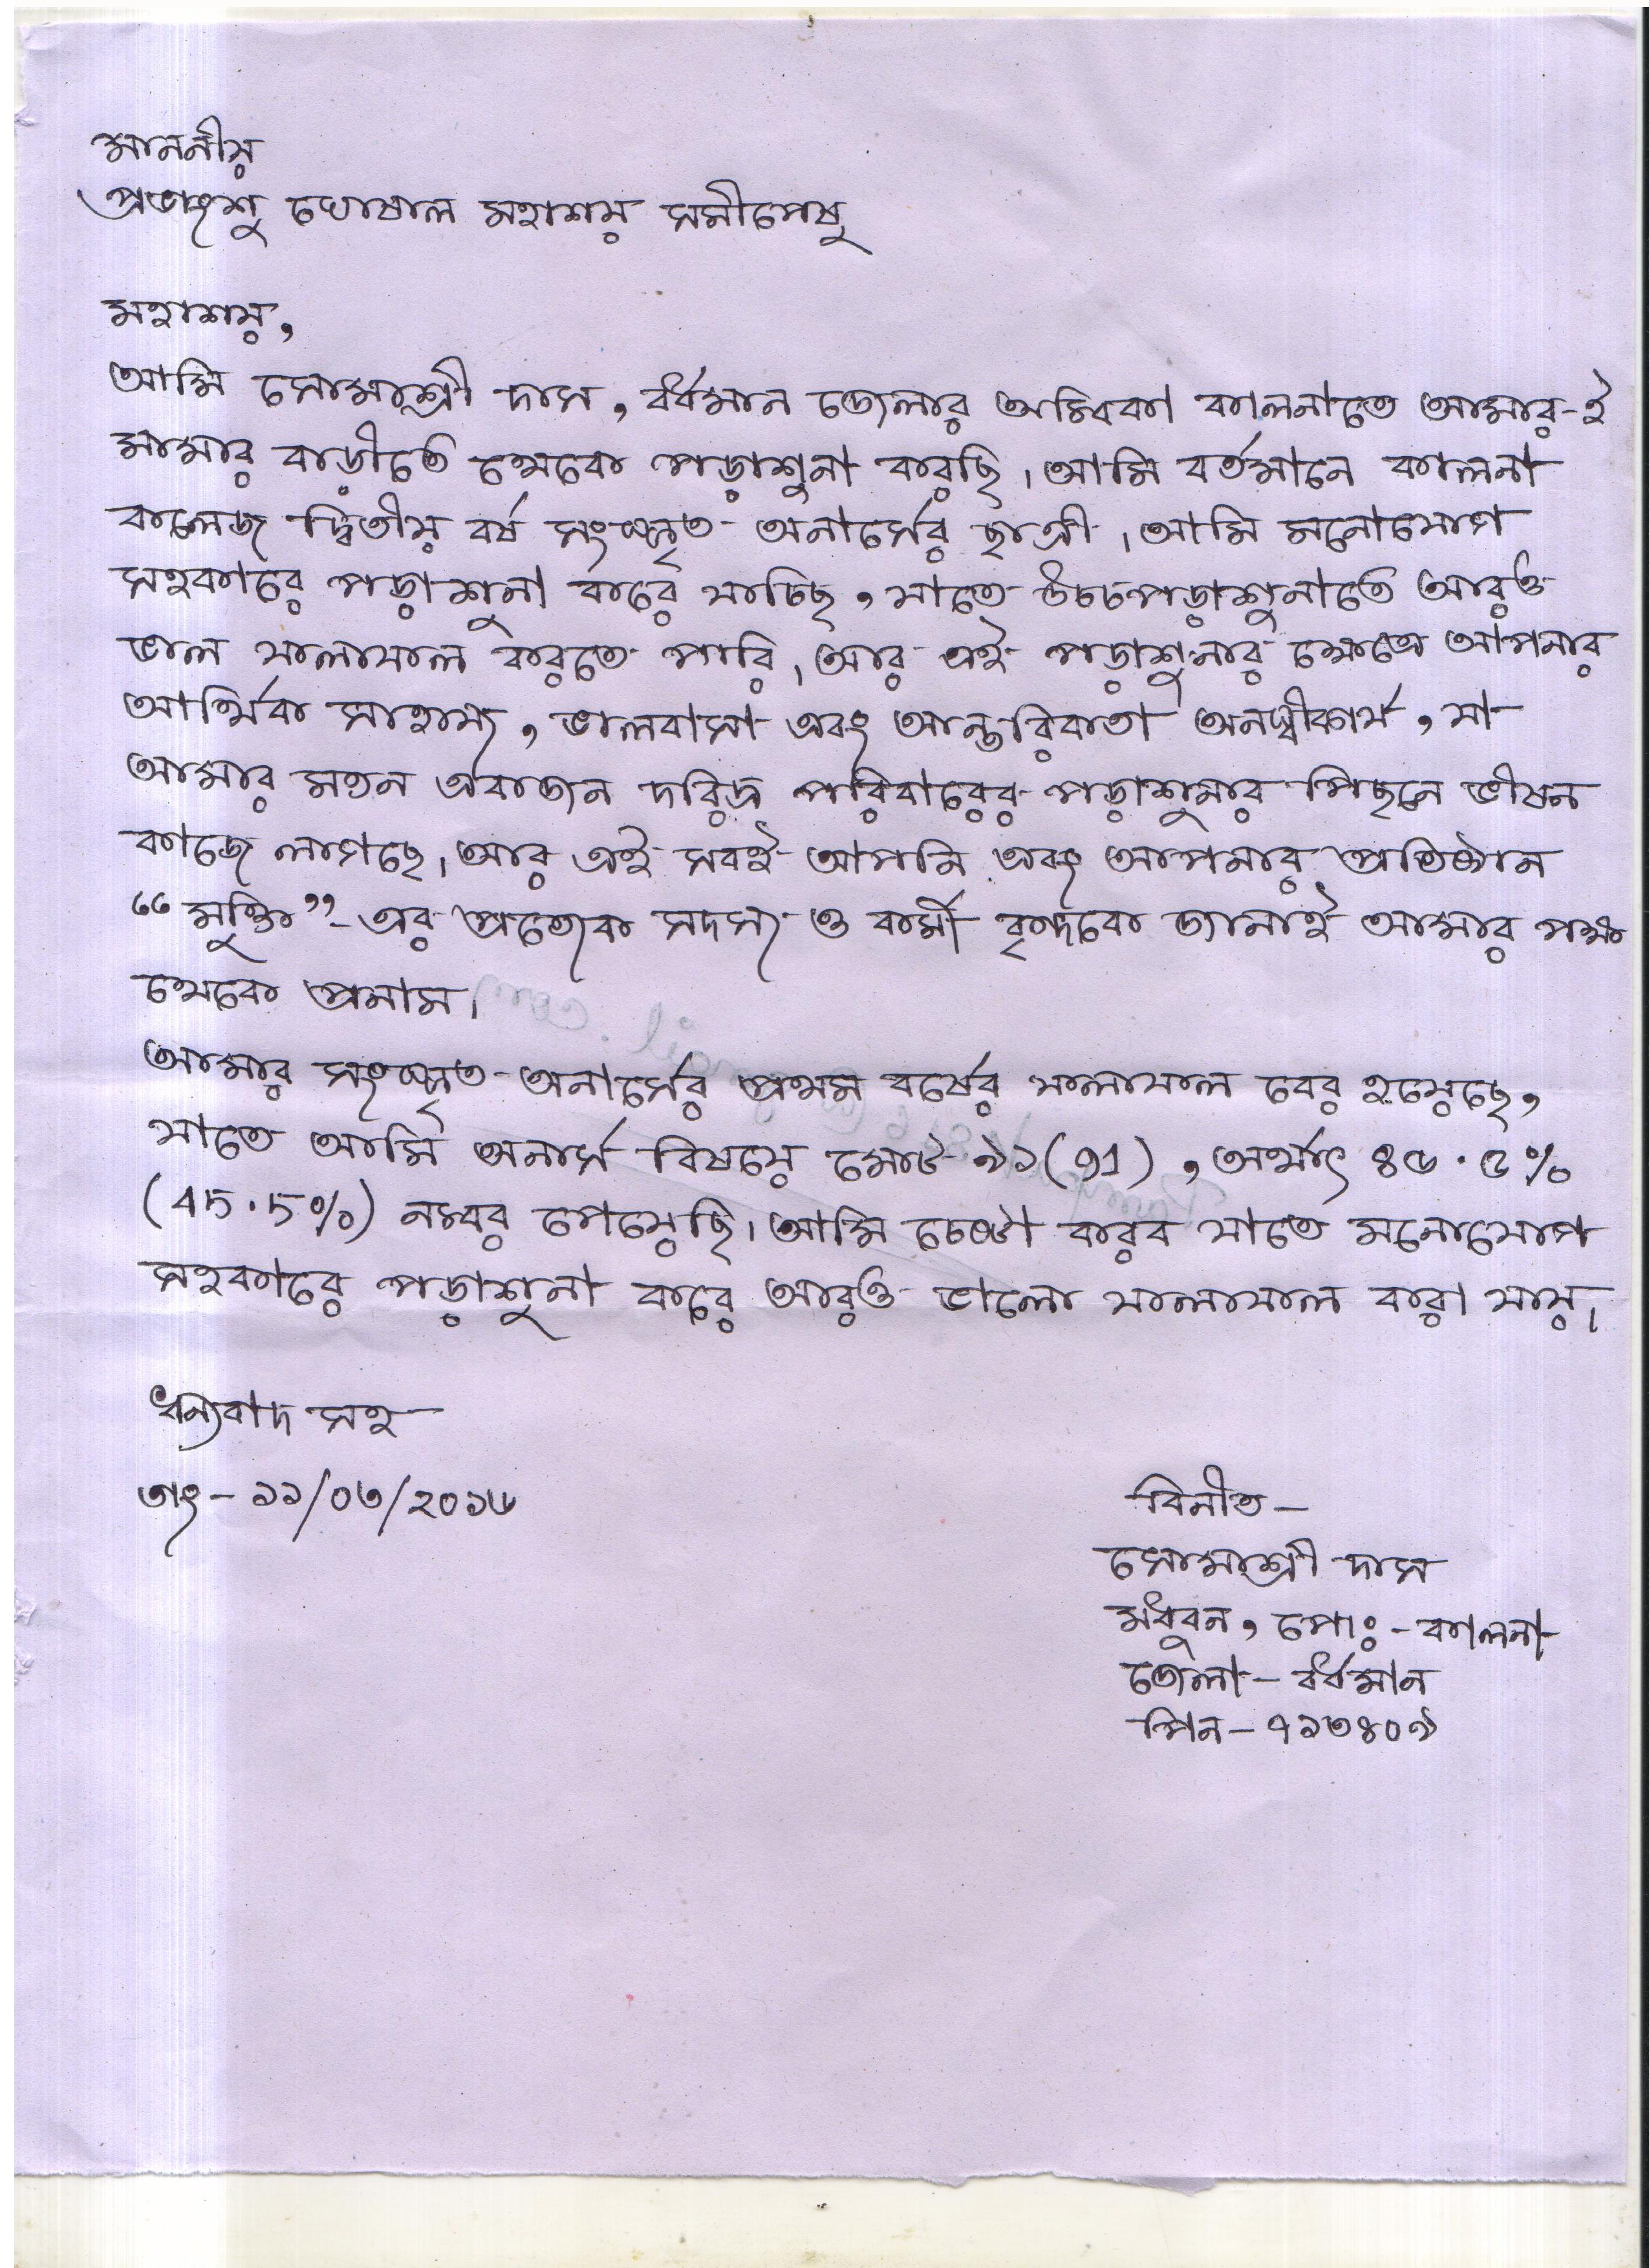 মাননীয়
প্রভাংশু ঘোষাল মহাশয় সমীপেষু
মহাশয়,
আমি সোমাশ্রী দাস, বর্ধমান জেলার অম্বিকা কালনাতে আমার-ই
মামার বাড়ীতে থেকে পড়াশুনা করছি। আমি বর্তমানে কালনা
কলেজ দ্বিতীয় বর্ষ সংস্কৃত অনার্সের ছাত্রী। আমি মনোযোগ
সহকারে পড়াশুনা করে যাচ্ছি, যাতে উচ্চপড়াশুনাতে আরও
ভাল ফলাফল করতে পারি। আর এই পড়াশুনার ক্ষেত্রে আপনার
আর্থিক সাহায্য, ভালবাসা এবং আন্তরিকতা অনস্বীকার্য, যা
আমার মতন একজন দরিদ্র পরিবারের পড়াশুনার পিছনে ভীষন
কাজে লাগছে। আর এই সবই আপনি এবং আপনার প্রতিষ্ঠান
“মুক্তি”-এর প্রত্যেক সদস্য ও কর্মী বৃন্দকে জানাই আমার পক্ষ
থেকে প্রনাম।
আমার সংস্কৃত অনার্সের প্রথম বর্ষের ফলাফল বের হয়েছে,
যাতে আমি অনার্স বিষয়ে মোট ৯১(91), অর্থাৎ ৪৫.৫%
(45.5%) নম্বর পেয়েছি। আমি চেষ্টা করব যাতে মনোযোগ
সহকারে পড়াশুনা করে আরও ভালো ফলাফল করা যায়।
ধন্যবাদ সহ
তাং- ১১/০৩/২০১৬
বিনীত-
সোমাশ্রী দাস
মধুবন, পোঃ-কালনা
জেলা- বর্ধমান
পিন- ৭১৩৪০৯